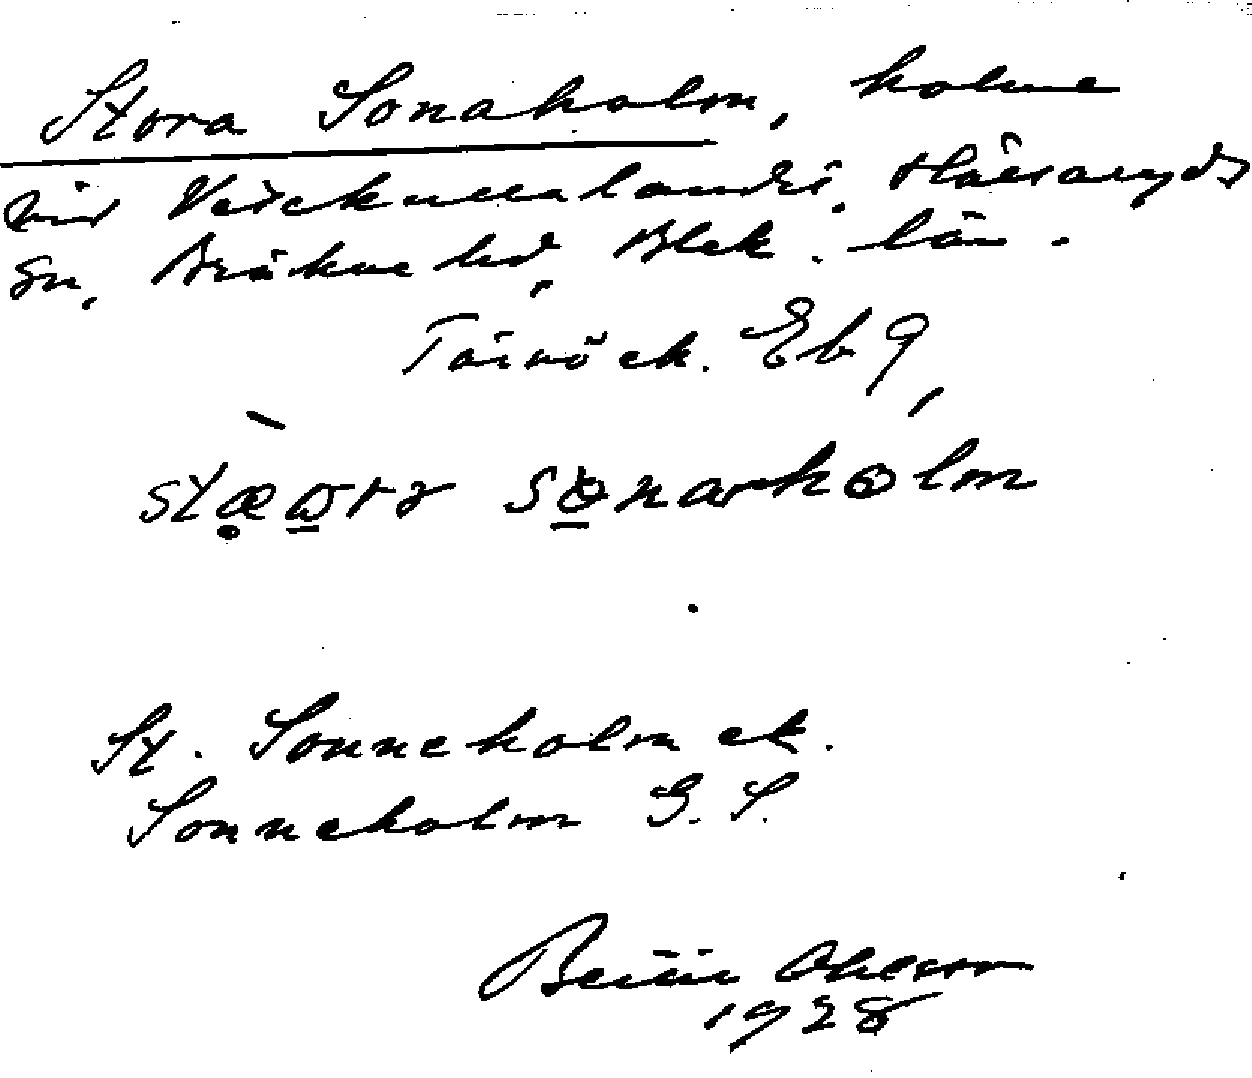 Stora Sonaholm, holme
vid Veickullalandet, Hällaryds
sn, Bräkne hd, Blek. län.
Tärnö ek. Eb 9,
stæɷrə sɷnarhɷlm
St. Sonneholm ek.
Sonneholm G. S.
Ohlsson
1928